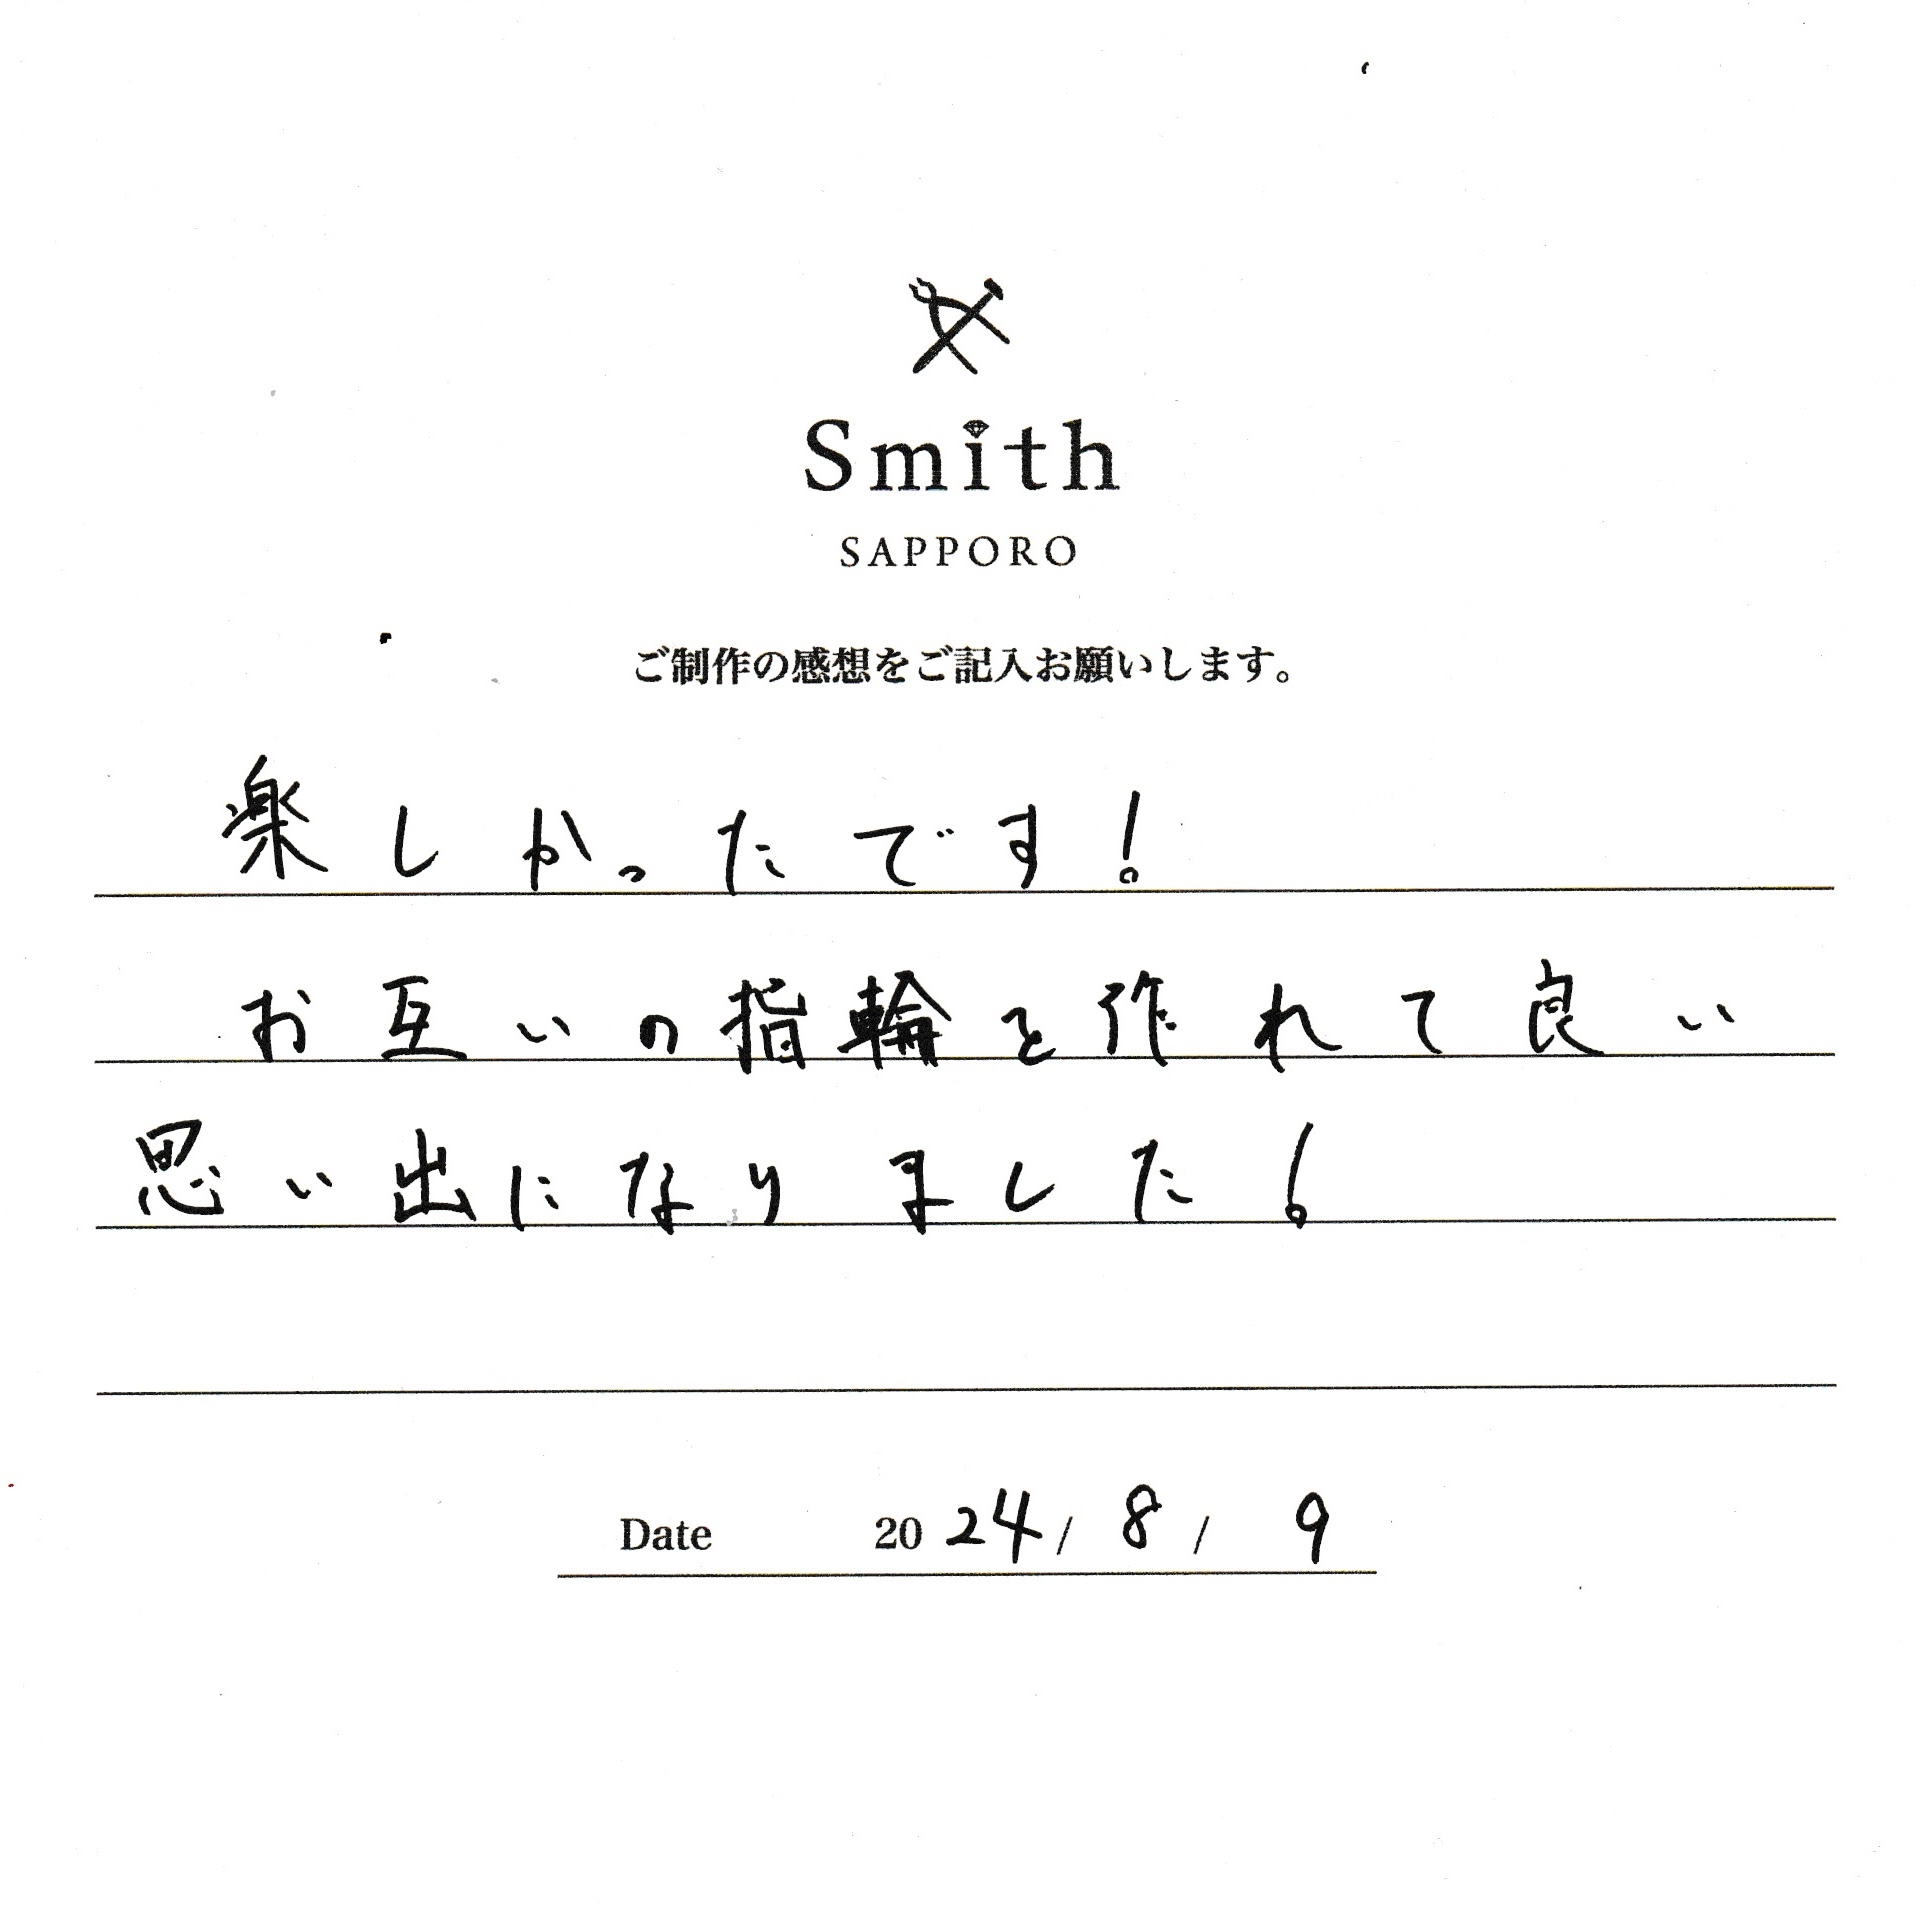 Smith
SAPPORO
ご制作の感想をご記入お願いします。
楽しかったです!
お互いの指輪を作れて良い
思い出になりました!
Date 2024/8/9